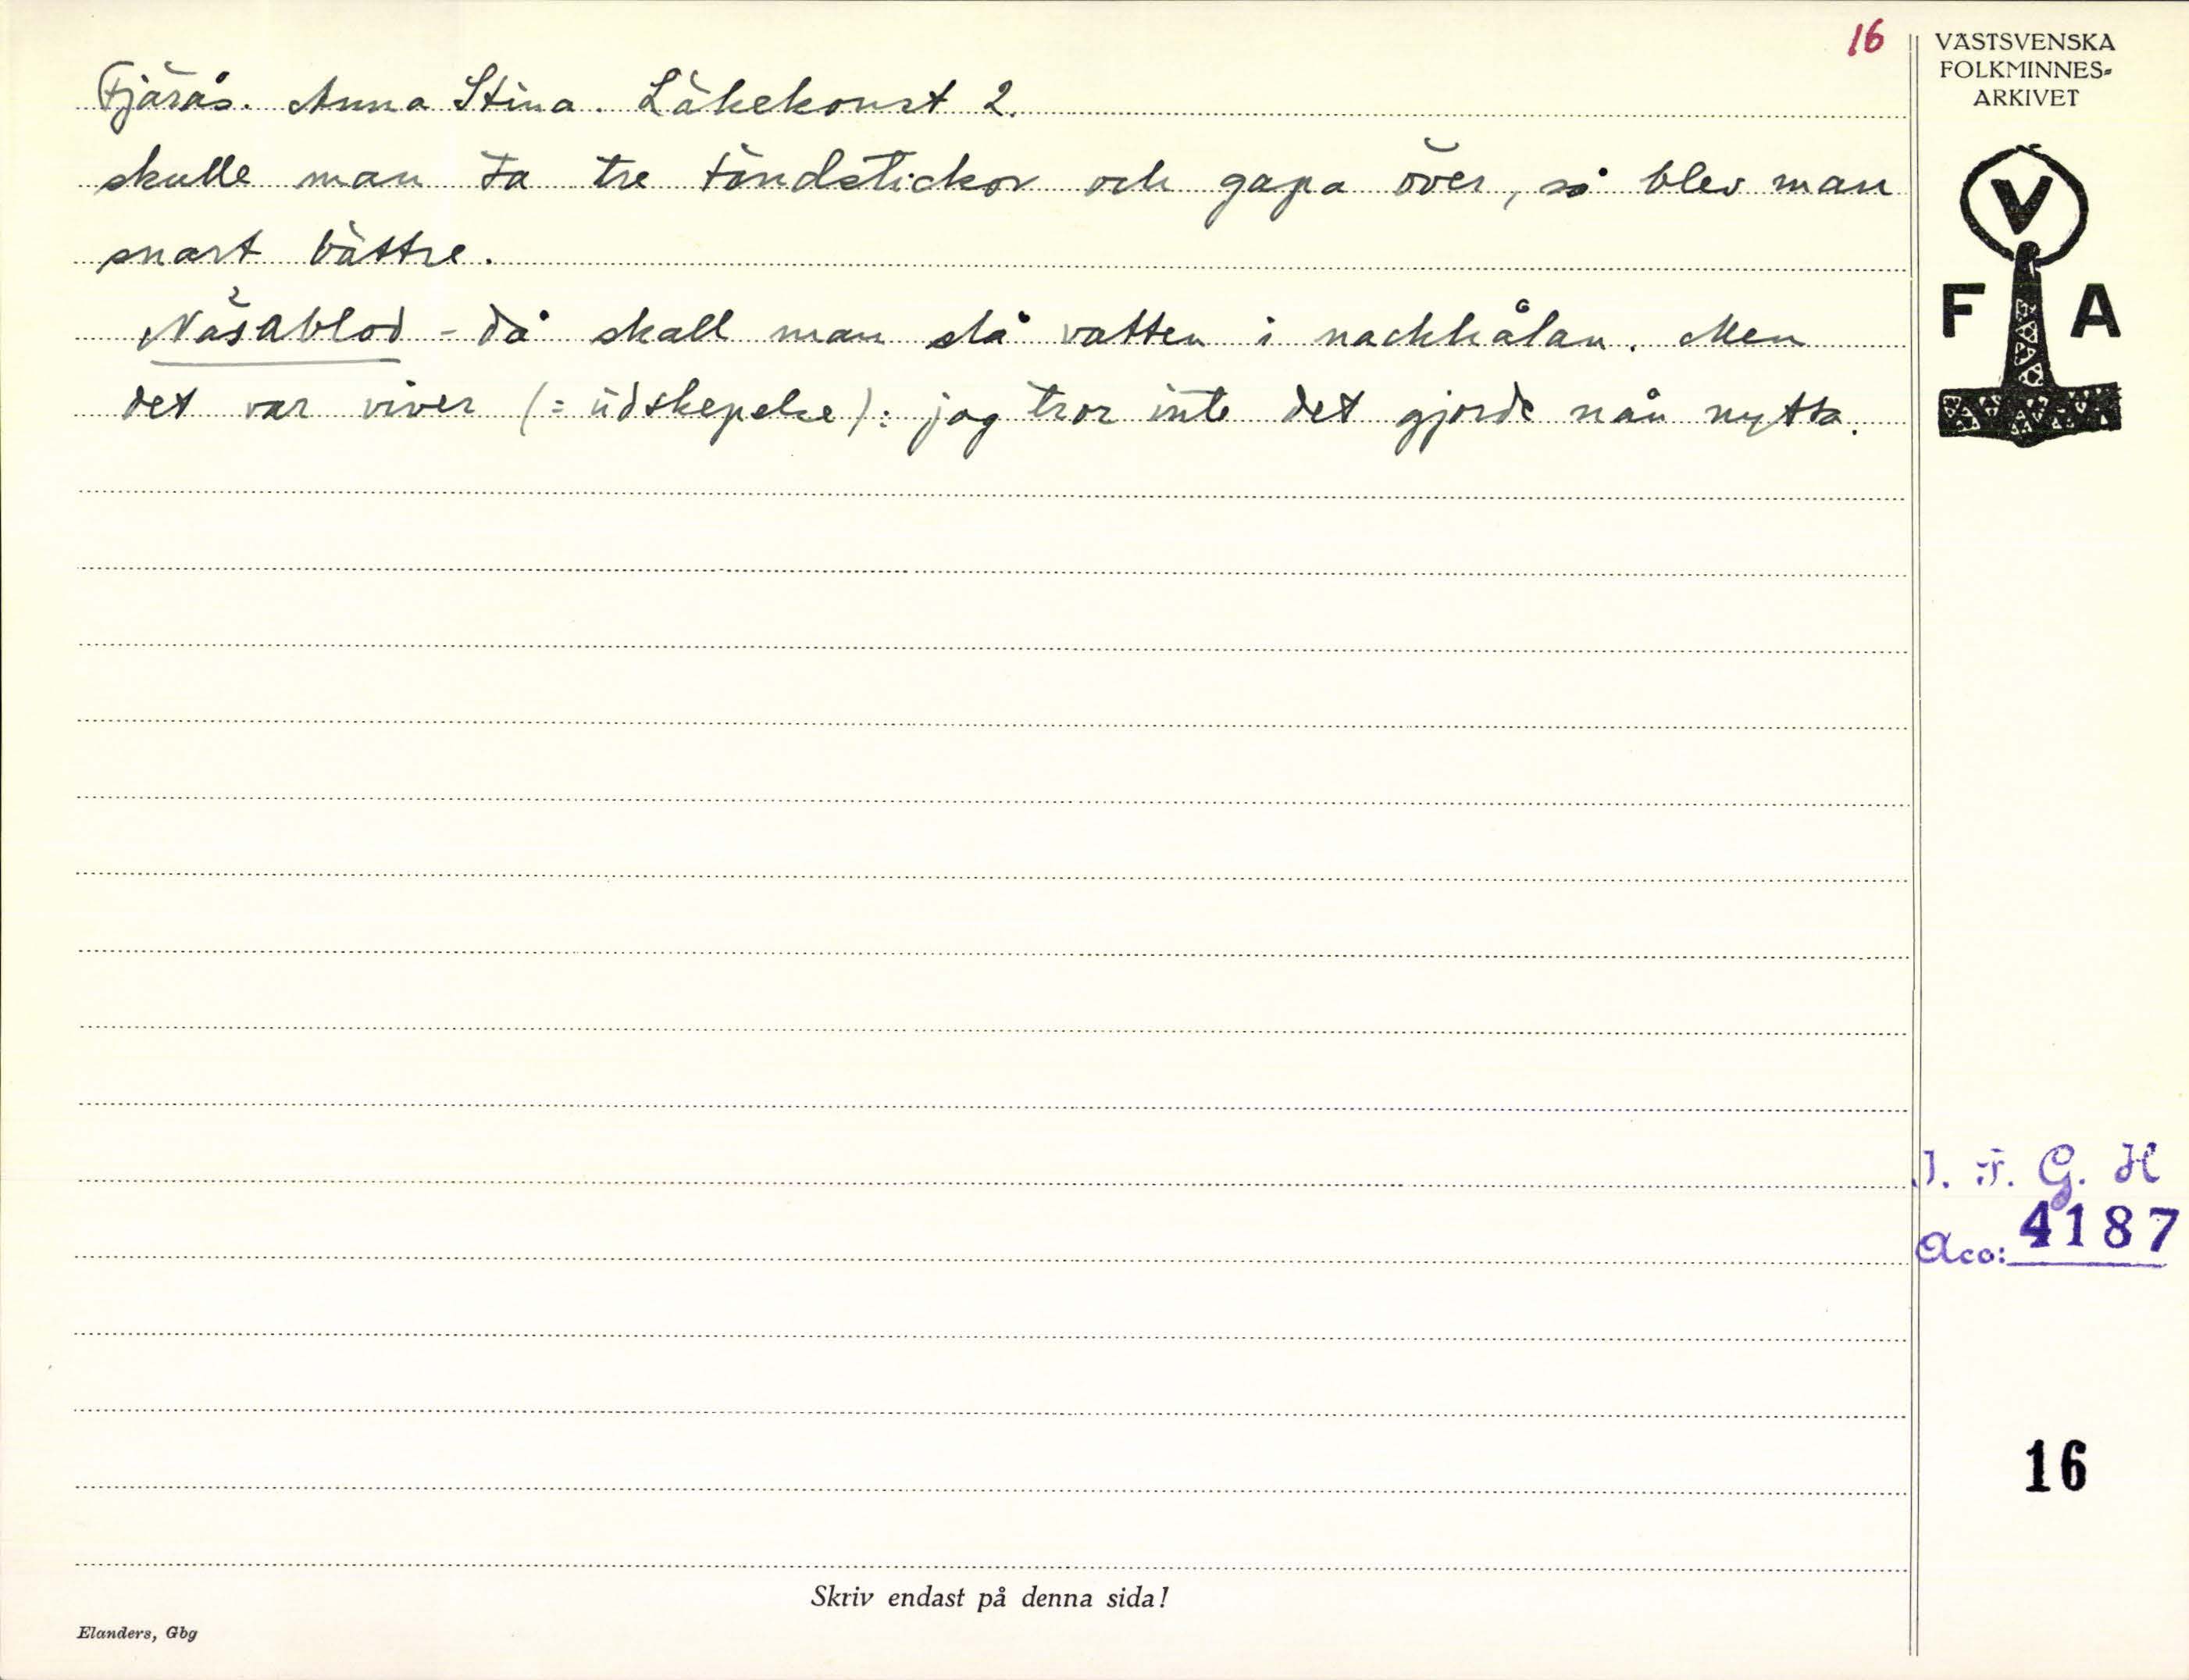 16
Fjärås. Anna Stina. Läkekonst 2.
skulle man ta tre tändstickor och gapa över, så blev man
snart bättre.
Näsablod - då skall man slå vatten i nackhålan. Men
det var viver (= üdskepelse): jag tror inte det gjorde nån nytta.
VÄSTSVENSKA
FOLKMINNES-
ARKIVET
V
F A
I. F. G. H
Acc: 4187
16
Skriv endast på denna sida!
Elanders, Gbg